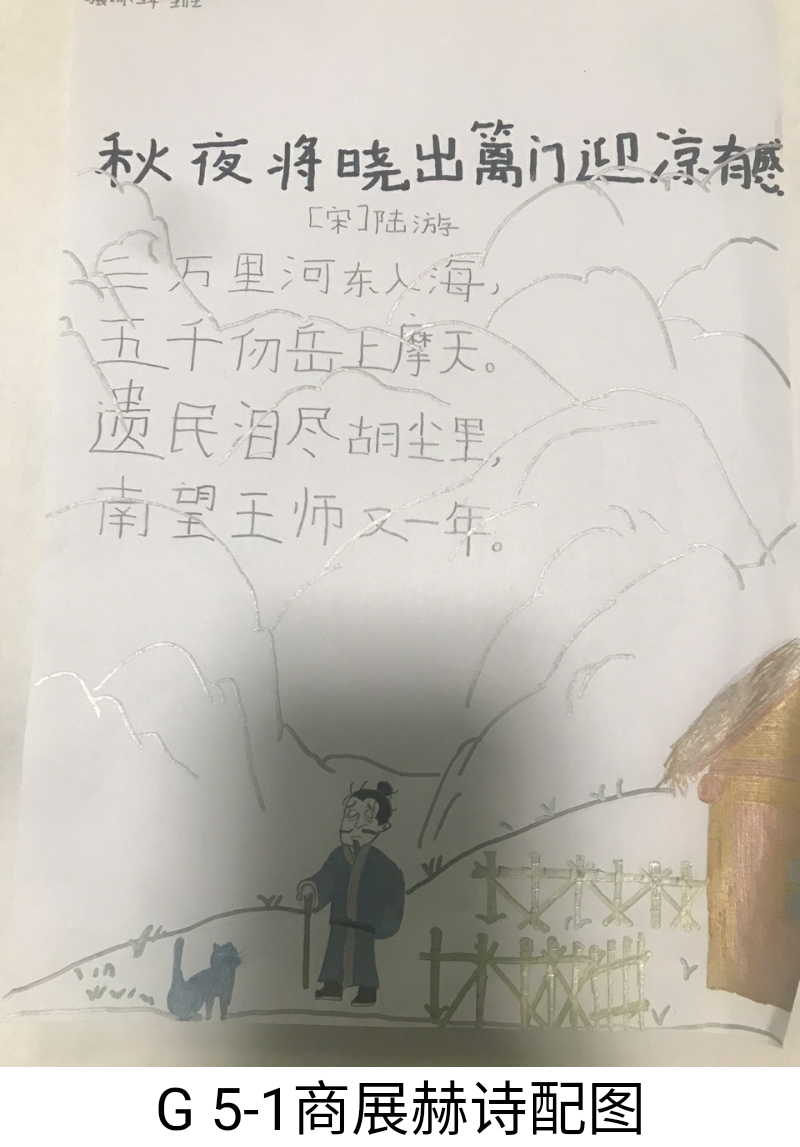 秋夜将晓出篱门迎凉有感
[宋]陆游
三万里河东入海,
五千仞岳上摩天。
遗民泪尽胡尘里,
南望王师又一年。
G 5-1商展赫诗配图